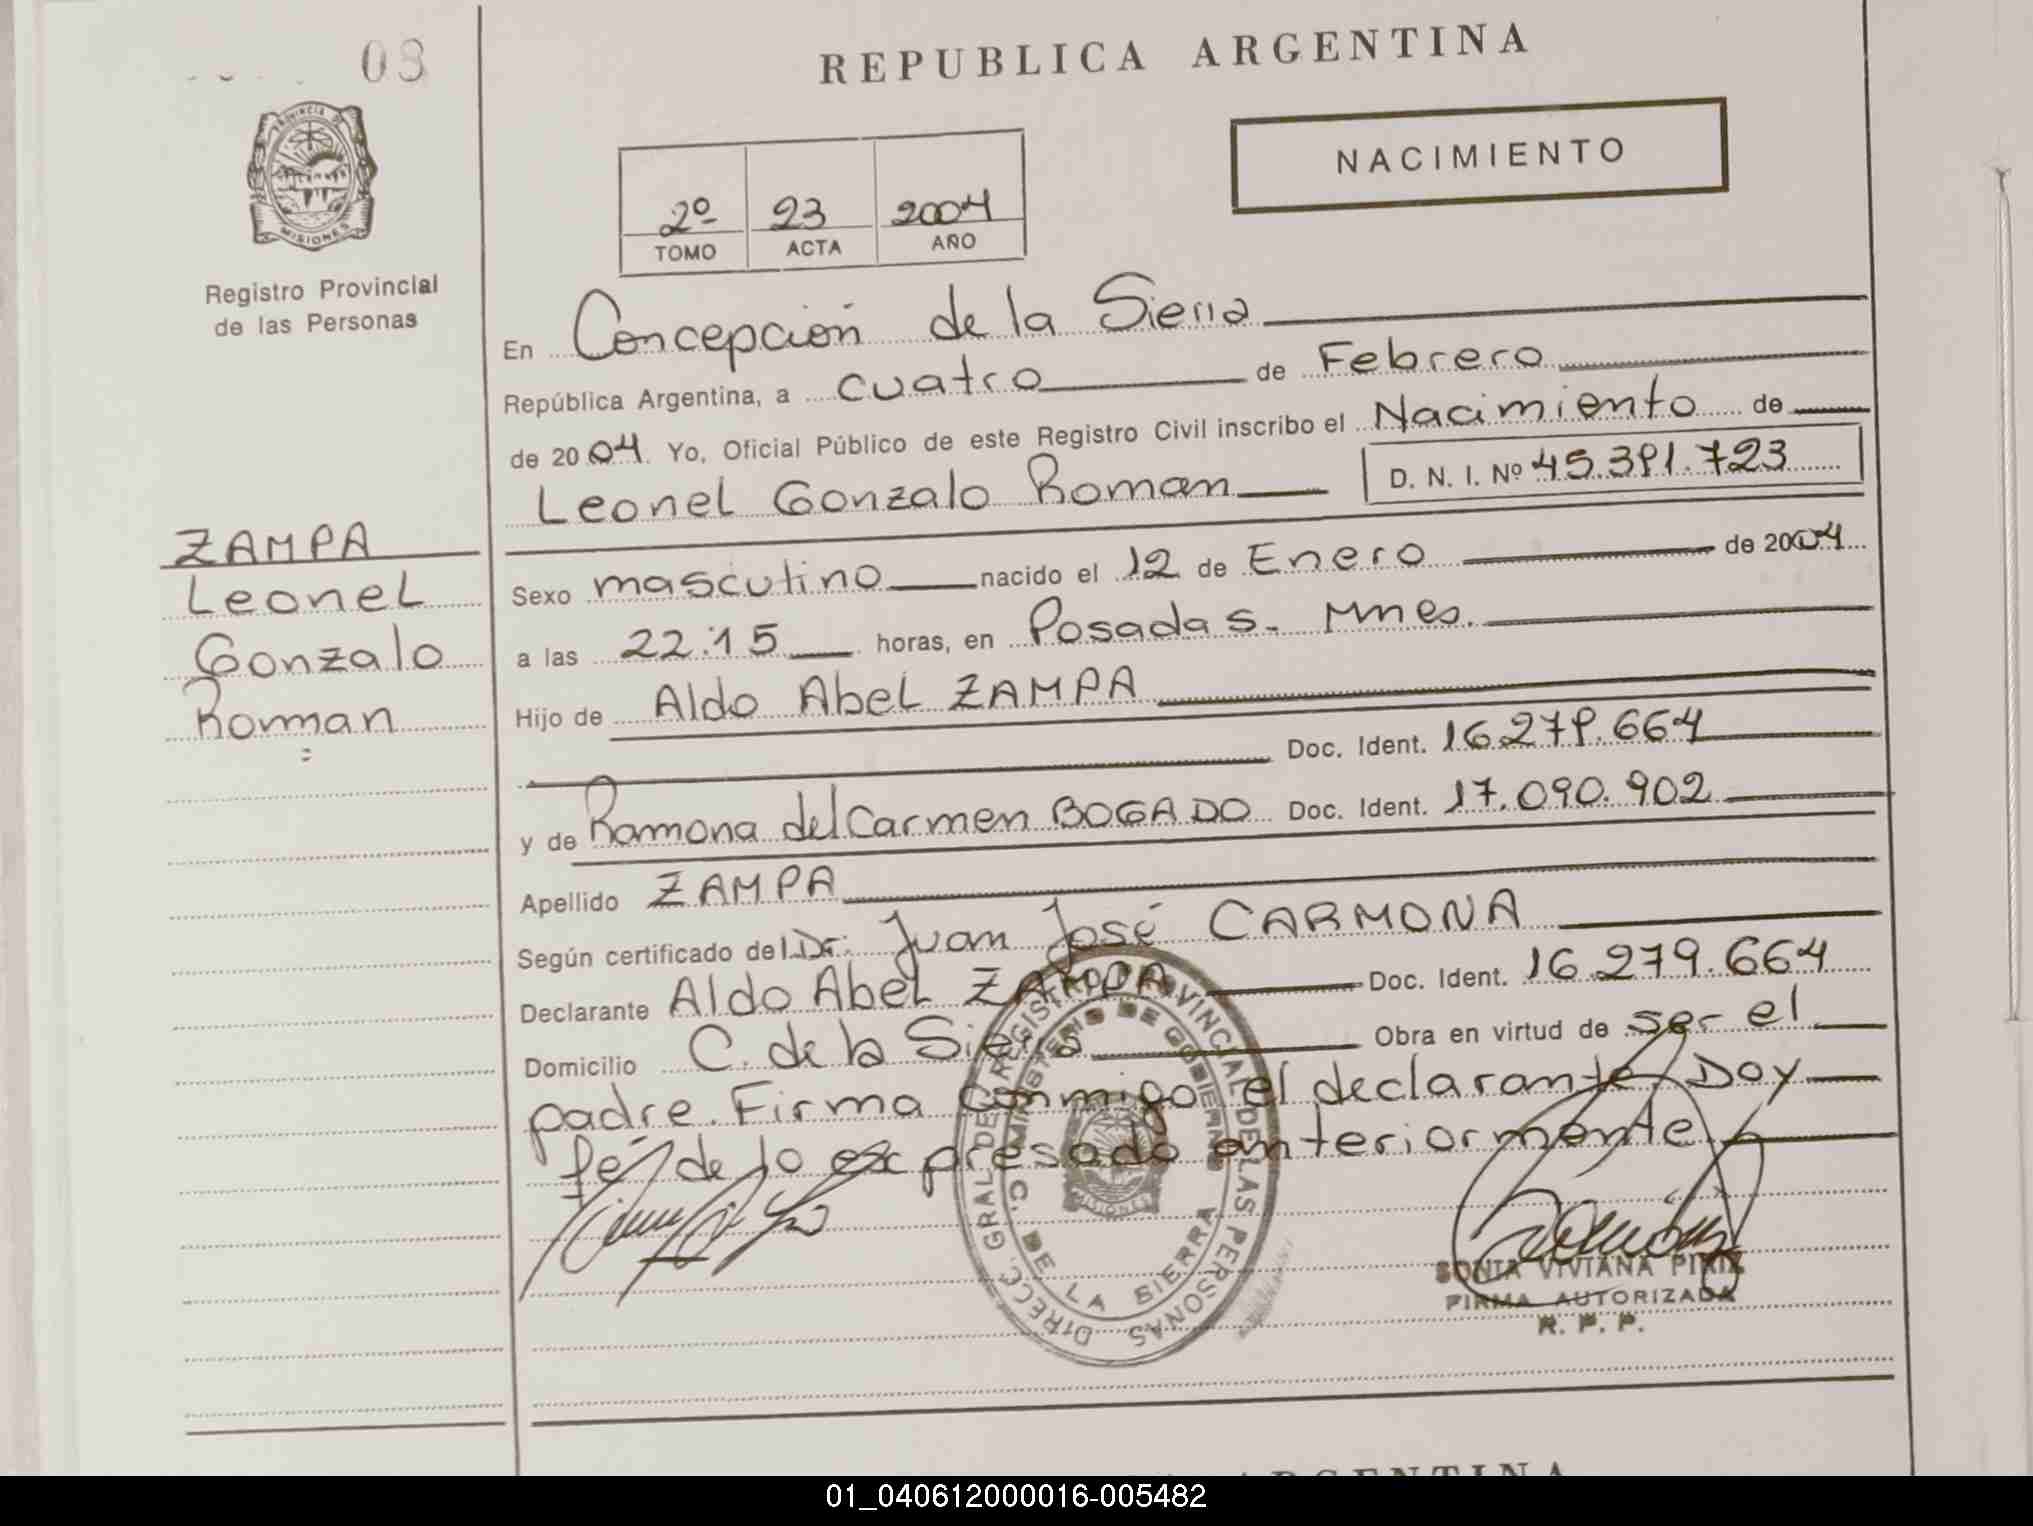 03
REPUBLICA ARGENTINA
NACIMIENTO
2º 23 2004
TOMO ACTA AÑO
PROVINCIA DE
MISIONES
Registro Provincial
de las Personas
En Concepción de la Sierra
República Argentina, a cuatro de Febrero
de 2004. Yo, Oficial Público de este Registro Civil inscribo el Nacimiento de
Leonel Gonzalo Roman D. N. I. Nº 45.391.723
ZAMPA
Leonel
Gonzalo
Roman
Sexo masculino nacido el 12 de Enero de 2004
a las 22:15 horas, en Posadas. Mnes.
Hijo de Aldo Abel ZAMPA
Doc. Ident. 16.279.664
y de Ramona del Carmen BOGADO Doc. Ident. 17.090.902
Apellido ZAMPA
Según certificado del Dr. Juan José CARMONA
Declarante Aldo Abel ZAMPA Doc. Ident. 16.279.664
Domicilio C. de la Sierra Obra en virtud de ser el
padre. Firma Conmigo el declarante, Doy
fé, de lo expresado anteriormente
DIRECC. GRAL DEL REGISTRO PROVINCIAL DE LAS PERSONAS
MINISTERIO DE GOBIERNO
C. DE LA SIERRA
MISIONES
SONIA VIVIANA PIRIZ
FIRMA AUTORIZADA
R. P. P.
ARGENTINA
01_040612000016-005482